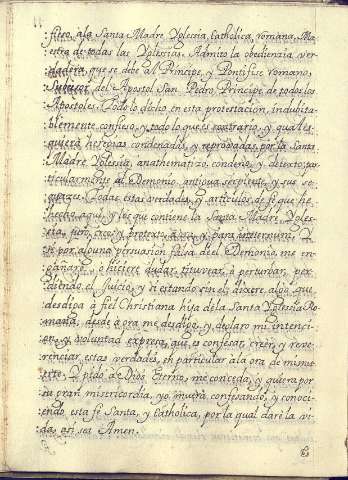 fieso, a la Santa Madre Yglesia, Catholica, romana, Ma
estra de todas las Yglesias. Admito la obediencia ver
dadera, que se debe al Principe, y Pontifise romano,
Susecor del Apostol San Pedro, Principe de todos los
Apostoles. Todo lo dicho, en esta protestacion, indubita
blemente, confieso, y todo lo que es contrario, y quales
quiera heregias condenadas, y reprovadas, por la Santa
Madre Yglesia, anathematizo, condeno, y detexto; par
ticularmente al Demonio, antigua serpiente, y sus se
quazes. Todas estas verdades, y articulos, de fè que he
hecho aqui, y los que contiene la Santa Madre, Ygle
sia, juro, creo, y protexto, aora, y para in eternum. Y
si por alguna persuasion falsa de el Demonio, me en
gañare, o hiciere dudar, titubear, ò perturbar, per
diendo el Juicio, y si estando sin el, dixere algo, que
desdiga à fiel Christiana hija de la Santa Yglesia Ro
mana, desde aora me desdigo, y declaro mi intenci
on, y voluntad expresa, que es confesar, creer, y reve
renciar, estas verdades, en particular a la ora de mi mu
erte, Y pido à Dios Eterno, me conceda, y quiera por
su gran misericordia, yo muera confesando, y conoci
endo esta fè Santa, y Catholica, por la qual darè la vi
da, asi sea Amen.